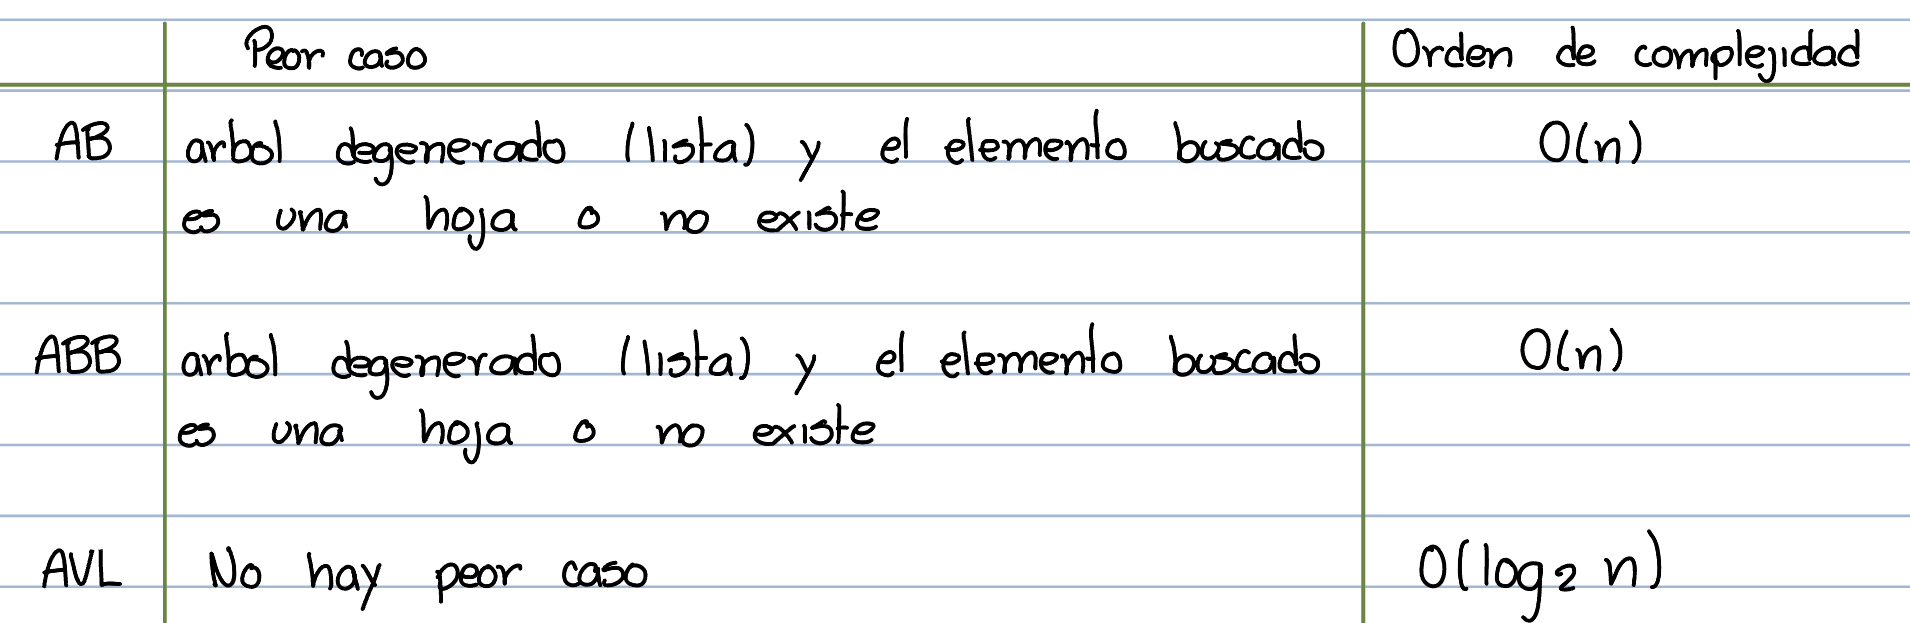 Peor caso Orden de complejidad
AB arbol degenerado (lista) y el elemento buscado O(n)
es una hoja o no existe
ABB arbol degenerado (lista) y el elemento buscado O(n)
es una hoja o no existe
AVL No hay peor caso O(log₂ n)